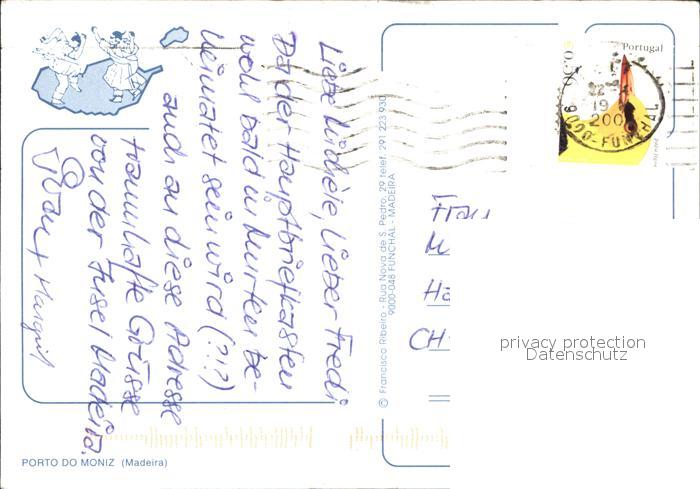 Liebe Michèle, Lieber Fredi
Da der Hauptbriefkasten
wohl bald in Murten be-
heimatet sein wird (?!?)
auch an diese Adresse
traumhafte Grüsse
von der Insel Madeira.
+ Margrit
Frau
M
Ha
CH-
privacy protection
Datenschutz
© Francisco Ribeiro - Rua Nova de S. Pedro, 29 telef. 291 223 930
9000-048 FUNCHAL - MADEIRA
Portugal
19
200
9000-FUNCHAL
PORTO DO MONIZ (Madeira)